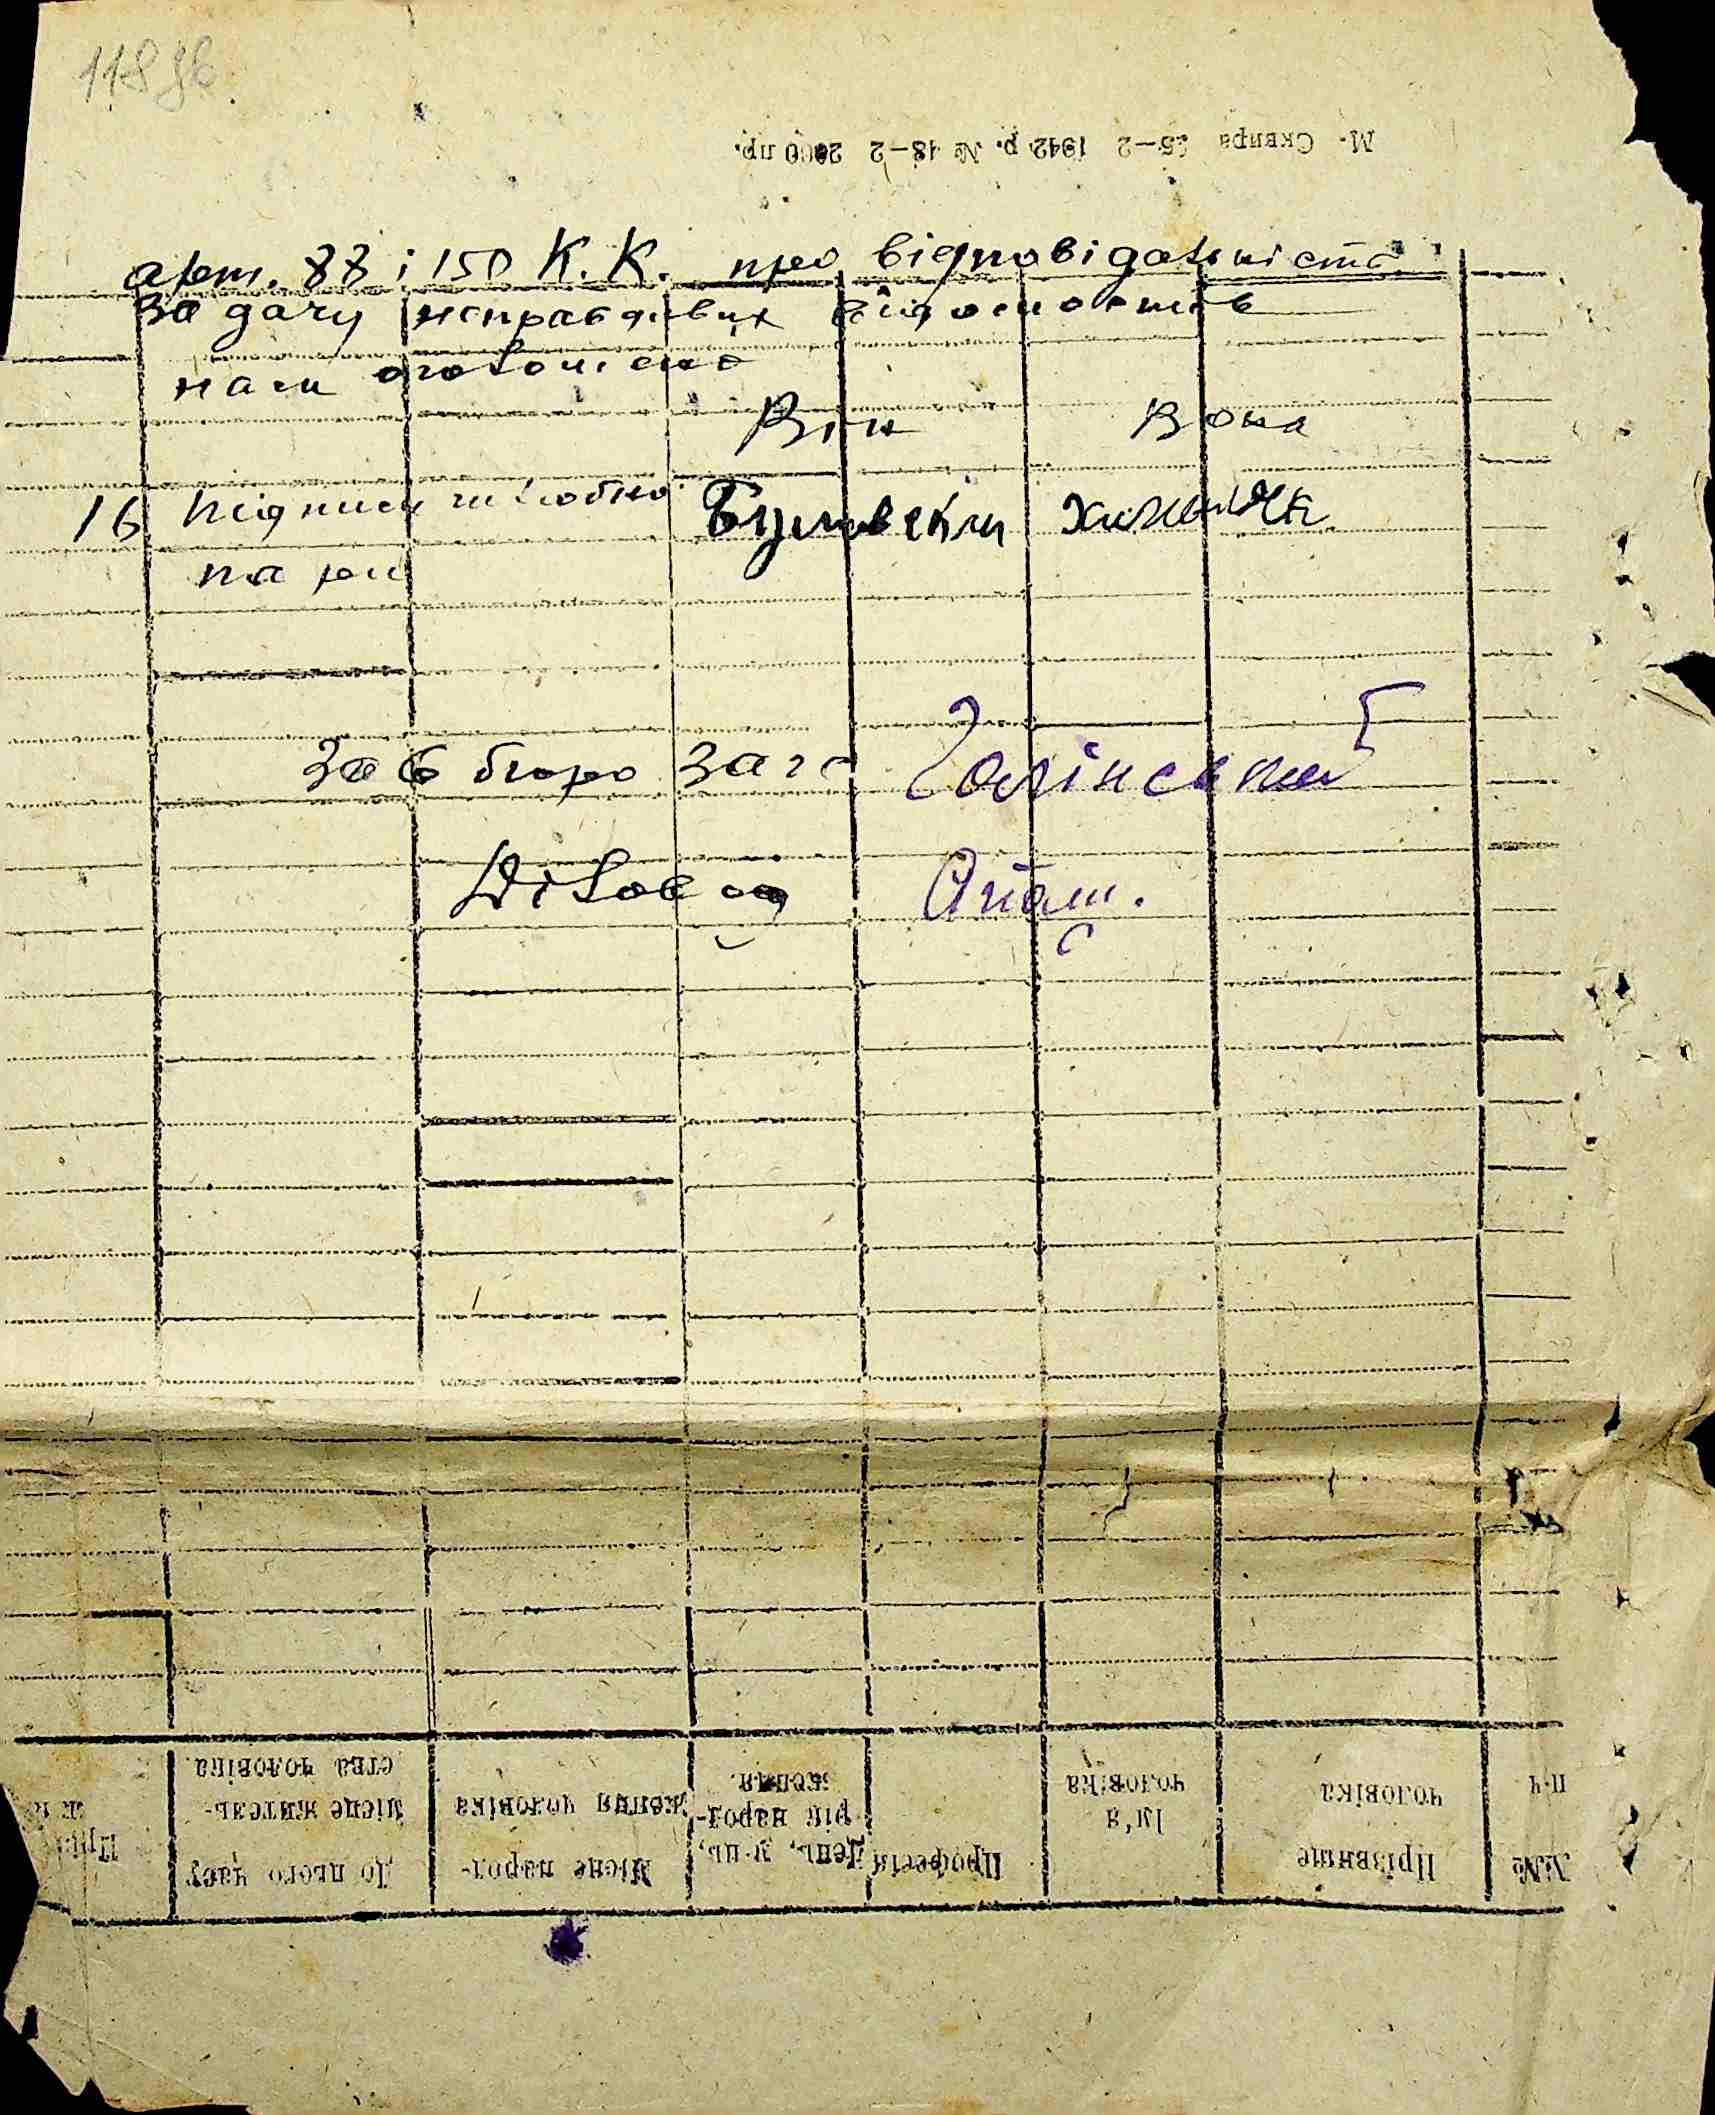 118 зв.
М. Сквира 25—2 1942 р. № 48—2 2000 пр.
арт. 88 і 150 К. К. про відповідальність
за дачу неправдивих відомостей
нам оголошено
Він Вона
16 Підписи шлюбної
пари
Зав бюро загс
Діловод
№№ п-ч
Прізвище чоловіка
Ім'я чоловіка
Професія
День, м-ць, рік народження.
Місце народження чоловіка
До цього часу місце жительства чоловіка.